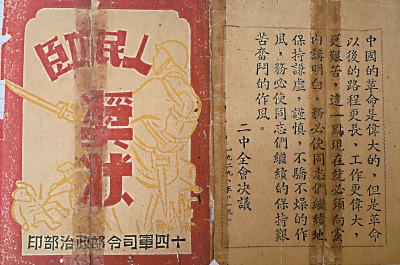 人民功臣
獎狀
十四軍司令部政治部印
中國的革命是偉大的，但是革命
以後的路程更長，工作更偉大
更艱苦，這一點現在就必須向黨
內講明白，務必使同志們繼續地
保持謙虛，謹慎，不驕不燥的作
風，務必使同志們繼續的保持艱
苦奮鬥的作風。
二中全會決議